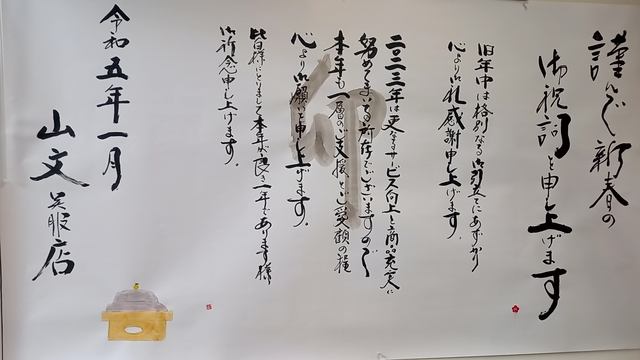 謹んで新春の
御祝詞を申し上げます
旧年中は格別なる御引立てにあずかり
心より御礼感謝申し上げます。
二〇二三年は更なるサービス向上と商品充実に
努めてまいる所存でございますので
本年も一層のご支援とご愛顧の程
心より御願いを申し上げます。
皆様にとりまして本年が良き一年であります様
御祈念申し上げます。
令和五年一月
山文呉服店